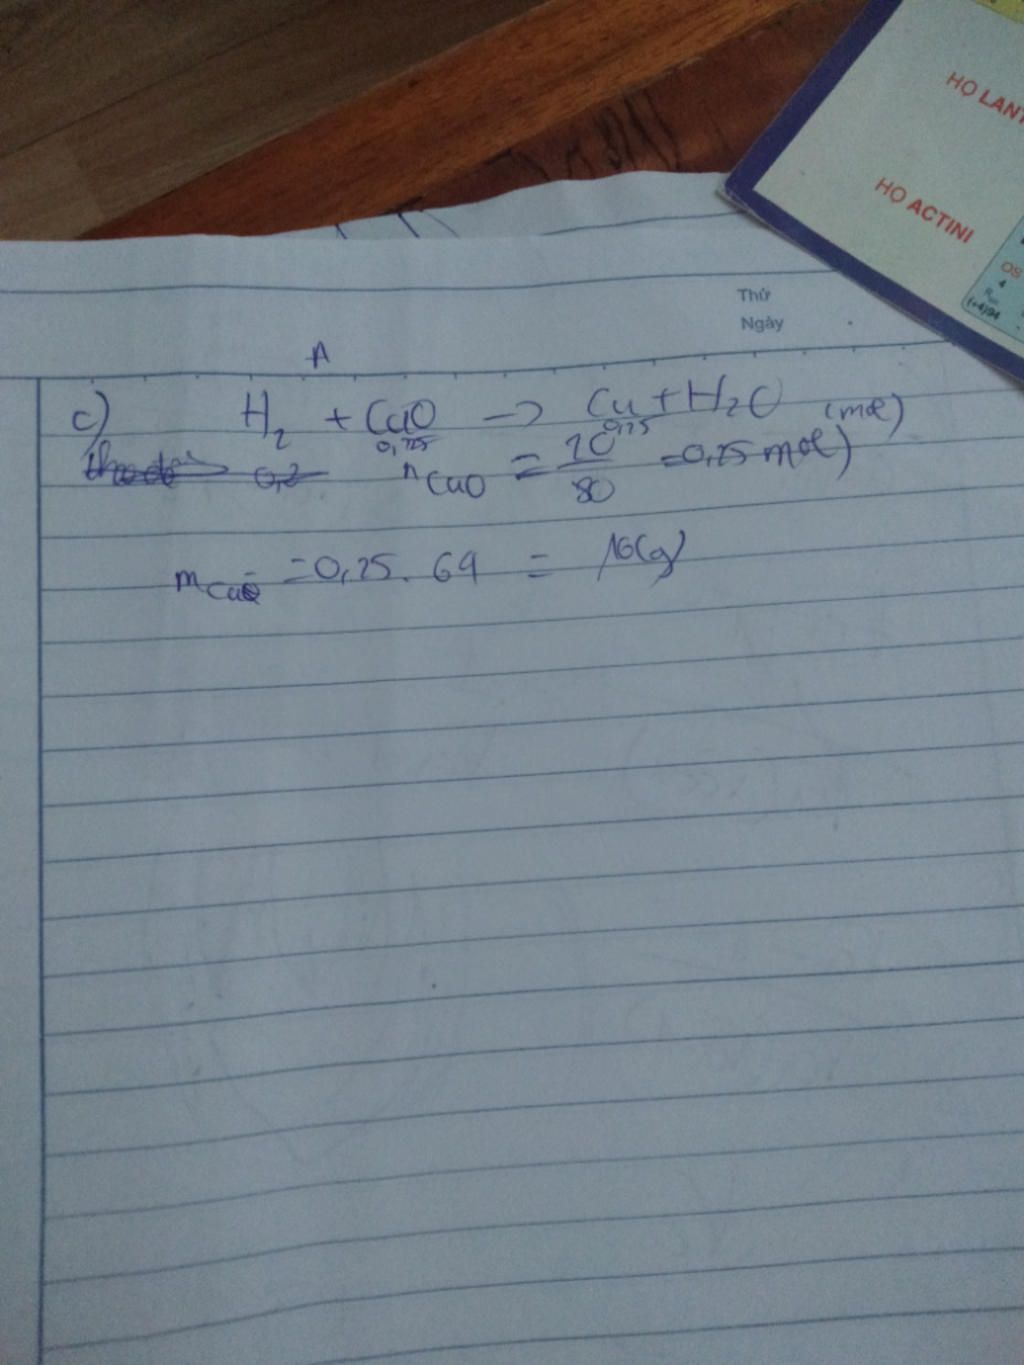 HỌ LANT
HỌ ACTINI
OS
4
(+4)94
Thứ
Ngày
A
c) H₂ + CuO → Cu + H₂O (mol)
0,25 0,25
0,2 nCuO = 20/80 = 0,25 mol)
mCu = 0,25. 64 = 16(g)